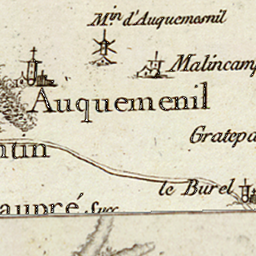 Min d'Auquemesnil
Malincamp
Auquemenil
Gratepa
ntin
le Burel
aupré Succ